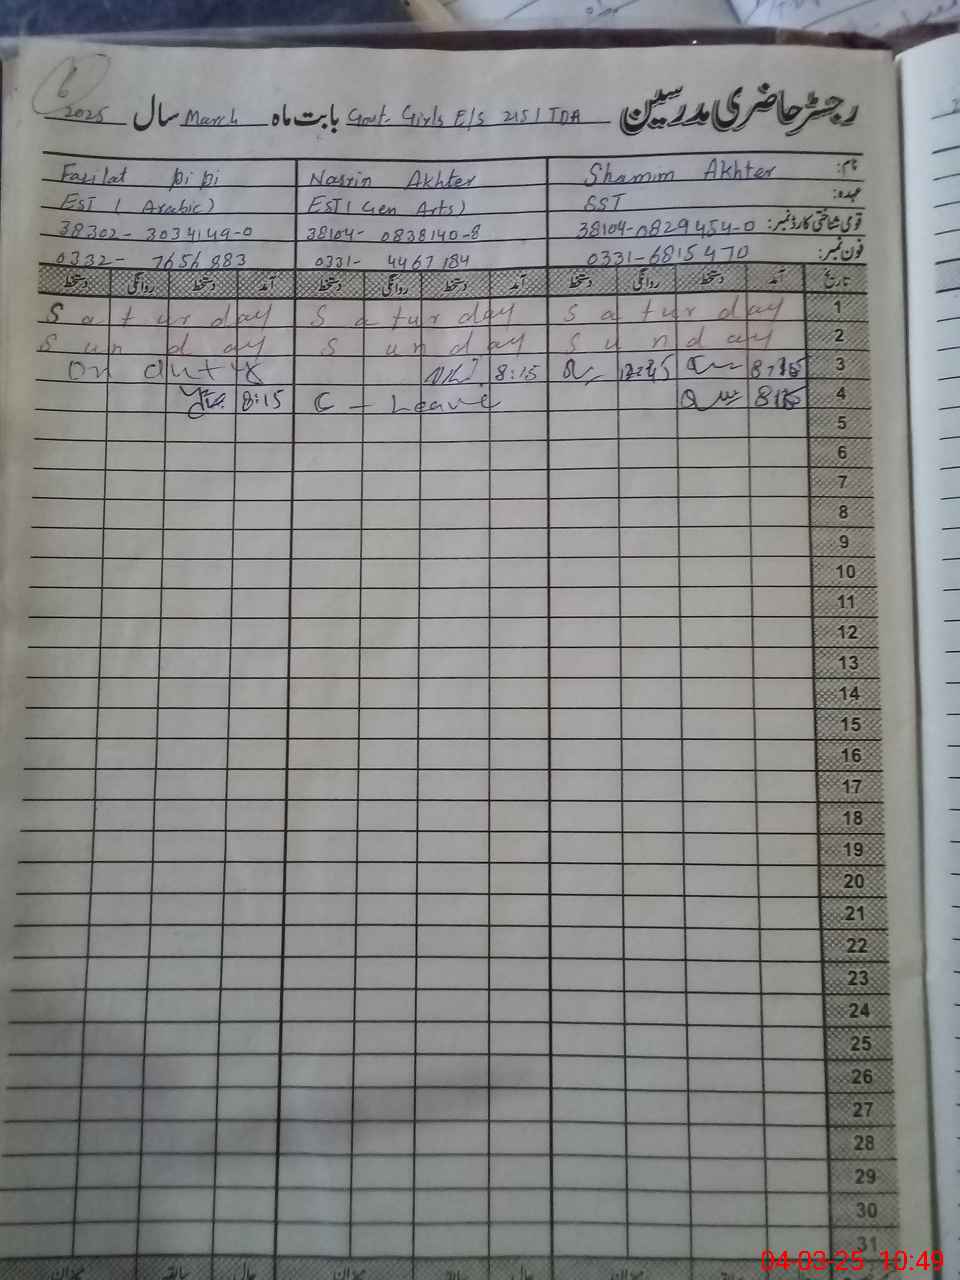 6
رجسٹر حاضری مدرسین Govt. Girls E/S 215/TDA بابت ماہ March سال 2025
نام: Shamim Akhter Nasrin Akhter Fazilat Bibi
عہدہ: SST EST (Gen Arts) EST (Arabic)
قومی شناختی کارڈ نمبر: 38104-0829454-0 38104-0838140-8 38302-3034149-0
فون نمبر: 0331-6815470 0331-4467184 0332-7656883
تاریخ آمد دستخط روانگی دستخط آمد دستخط روانگی دستخط آمد دستخط روانگی دستخط
1 Saturday Saturday Saturday
2 Sunday Sunday Sunday
3 8:15 12:45 8:15 On duty
4 8:15 C - Leave 8:15
5
6
7
8
9
10
11
12
13
14
15
16
17
18
19
20
21
22
23
24
25
26
27
28
29
30
31
04-03-25 10:49